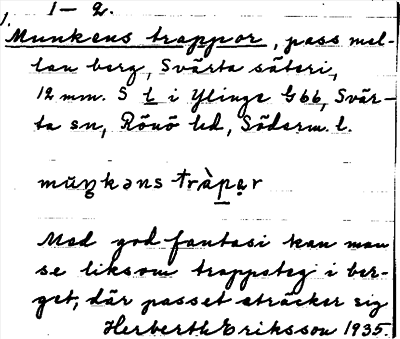 1, 1-2.
Munkens trappor, pass mel-
lan berg, Svärta säteri,
12 mm. S l i Ylinge G 66, Svär-
ta sn, Rönö hd, Söderm. l.
mŭŋkəns tràpər
Med god fantasi kan man
se liksom trappsteg i ber-
get, där passet sträcker sig
Herberth Eriksson 1935.